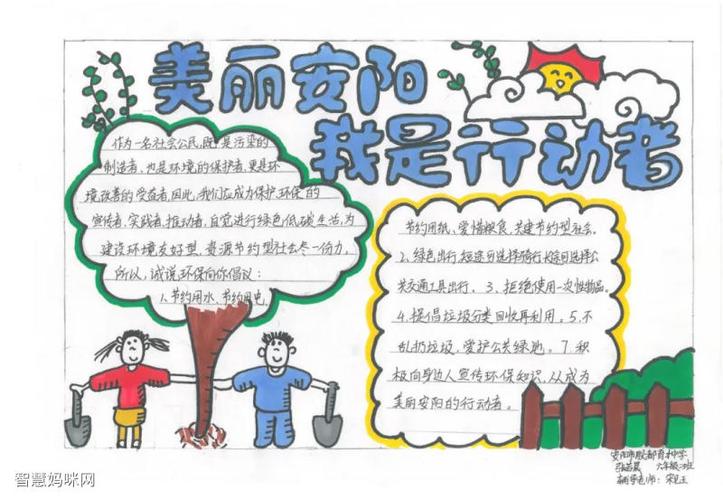 美丽安阳
我是行动者
作为一名社会公民,既是污染的
制造者,也是环境的保护者,更是环
境改善的受益者,因此,我们应成为保护环保的
宣传者,实践者,推动者,自觉进行绿色低碳生活,为
建设环境友好型、资源节约型社会尽一份力。
所以,诚说环保向你倡议:
1、节约用水、节约用电、
节约用纸、爱惜粮食、共建节约型社会。
2、绿色出行,短途可选择骑行,长途可选择公
共交通工具出行。3、拒绝使用一次性物品。
4、提倡垃圾分类回收再利用。5、不
乱扔垃圾,爱护公共绿地。7.积
极向身边人宣传环保知识,从成为
美丽安阳的行动者。
安阳市殷都
六年级 班
辅导老师:宋
智慧妈咪网